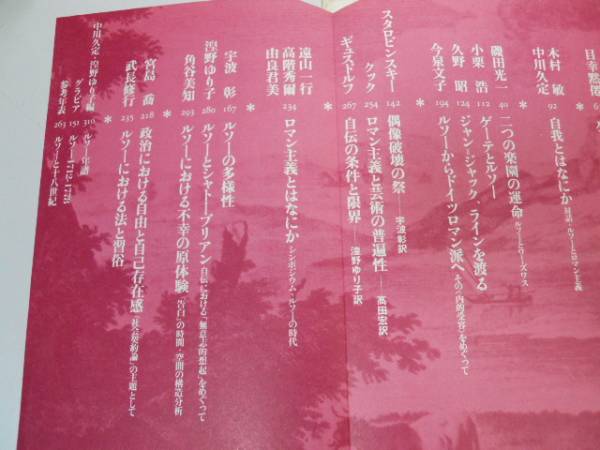 木村 敏
中川久定
92 自我とはなにか 対話・ルソーとロマン主義
*
磯田光一 40 二つの楽園の運命 ルソーとワーズワス
小栗 浩 112 ゲーテとルソー
久野 昭 124 ジャン・ジャック、ラインを渡る
今泉文子 194 ルソーからドイツロマン派へ その〈内的受容〉をめぐって
*
スタロビンスキー 142 偶像破壊の祭——宇波彰訳
クック 254 ロマン主義と芸術の普遍性——高田宏訳
ギュスドルフ 267 自伝の条件と限界——湟野ゆり子訳
*
遠山一行
高階秀爾
由良君美
234 ロマン主義とはなにか シンポジウム・ルソーの時代
*
宇波 彰 167 ルソーの多様性
湟野ゆり子 280 ルソーとシャトーブリアン 自伝における「無意志的想起」をめぐって
角谷美知 293 ルソーにおける不幸の原体験 『告白』の時間・空間の構造分析
*
宮島 喬 218 政治における自由と自己存在感 『社会契約論』の主題として
武長脩行 235 ルソーにおける法と習俗
*
中川久定・湟野ゆり子編 310 ルソー年譜
グラビア 151 ルソー1712-1778
参考年表 263 ルソーと十八世紀